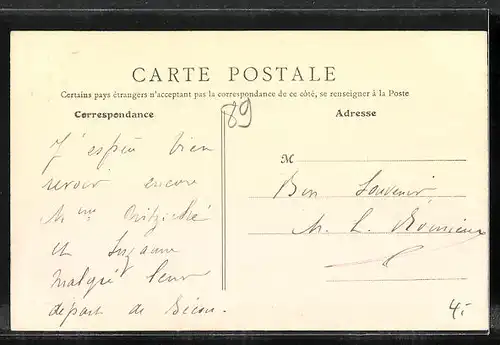 CARTE POSTALE
Certains pays étrangers n'acceptant pas la correspondance de ce côté, se renseigner à la Poste
Correspondance
89
Adresse
J'espère bien
revoir encore
Mme
et Suzanne
malgré leur
départ de
M
Bon Souvenir
M. L.
4.-